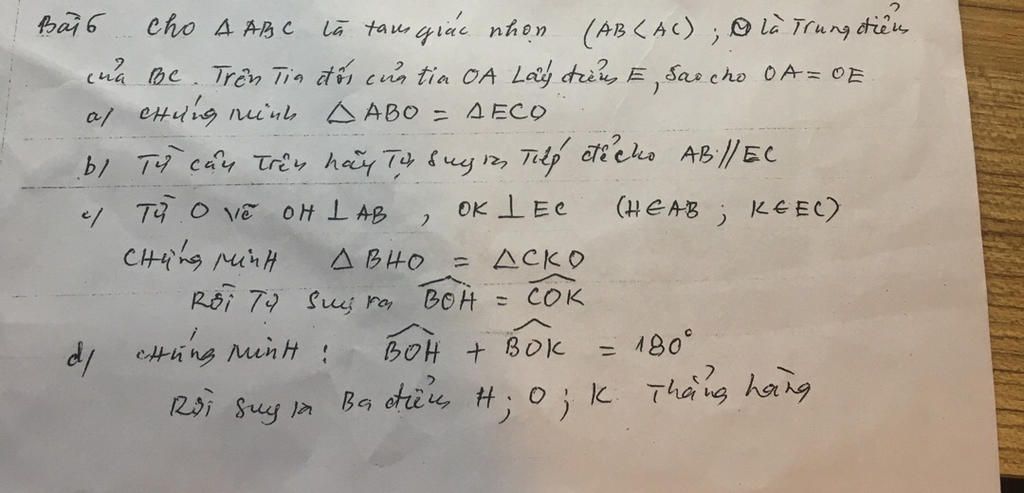 Bài 6 Cho △ ABC là tam giác nhọn (AB < AC) ; O là Trung điểm
của BC. Trên Tia đối của tia OA Lấy điểm E, sao cho OA = OE
a/ CHứng minh △ABO = △ECO
b/ Từ câu Trên hãy Tự Suy ra Tiếp để cho AB // EC
c/ Từ O vẽ OH ⊥ AB , OK ⊥ EC (H ∈ AB ; K ∈ EC)
CHứng MinH △BHO = △CKO
Rồi Tự Suy ra \widehat{BOH} = \widehat{COK}
d/ CHứng MinH : \widehat{BOH} + \widehat{BOK} = 180°
Rồi Suy ra Ba điểm H ; O ; K Thẳng hàng